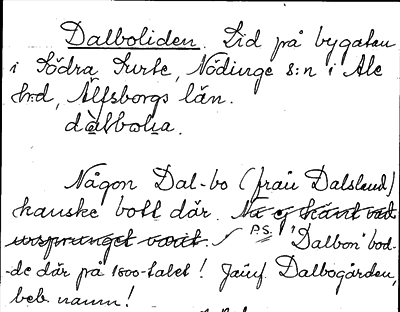 Dalboliden. Lid på bygatan
i Södra Surte, Nödinge s:n i Ale
h:d, Älfsborgs län.
dàlbωlia.
Någon Dal-bo (från Dalsland)
kanske bott där. Na ej känt vad
ursprunget varit. P.S. "Dalbon" bod-
-de där på 1800-talet! Jämf. Dalbogården,
beb. namn!